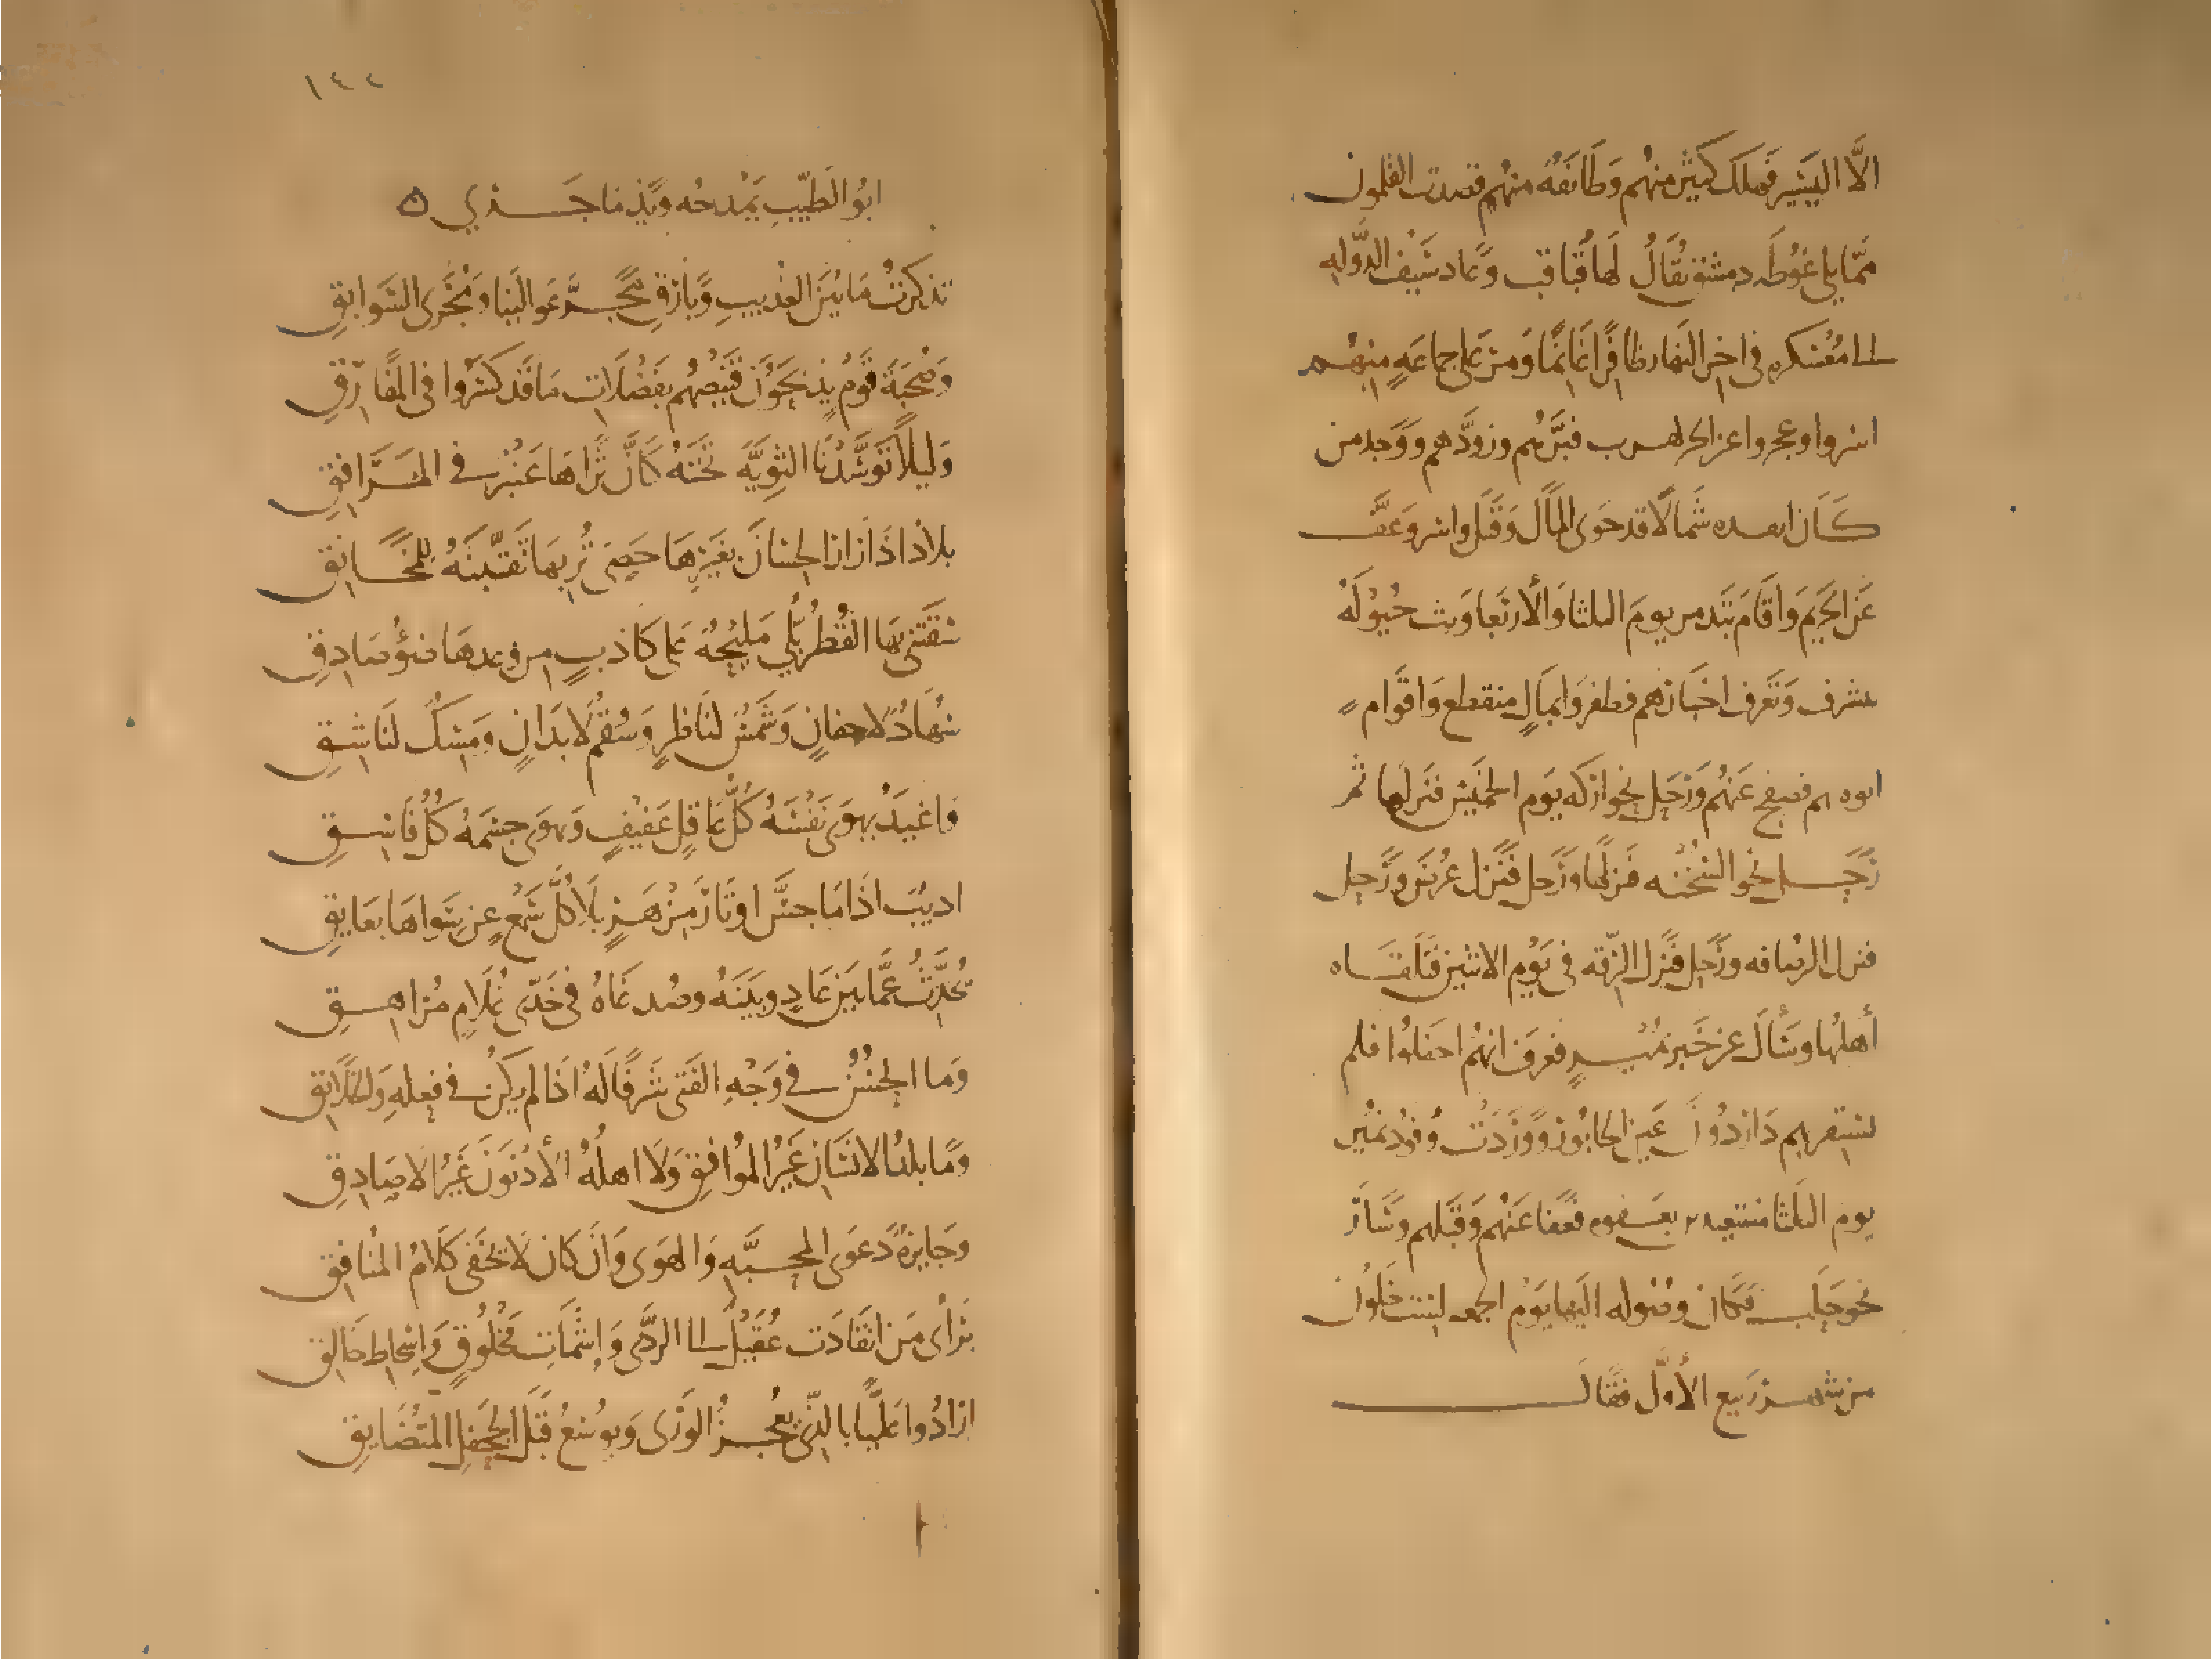 الَّا اليَسِير فهلك كثير منهم وَطَائفَه منهم قصدت القلمون
ممّا يلي غوُطَه دمشق يُقَالُ لهَا قباقب وَعاد سَيف الدَّوله
الى مُعَسكره في اخِر النهار ظافِرًا غَانمًا وَمَن عَلى جماعَهٍ منهم
اسروا وعجزوا عن الهرب فبرَّهم وزوَّدهم وَوَجد من
كَان ابعده شَمالًا قد حَوى المال وَقَتَل واسر وَعَفَّ
عَن الحَريم وَاقَامَ بتَدمر يومَ الثلثا وَالأربَعا وَبث خيُوُلَهُ
وَتعَرف اخبَارهم فظفروَا بمَالٍ منقطع وَاقوَام
فصفح عَنهُم وَرَحل نحو اركه يَوم الخَميس فنزلها ثم
رَحَل نحو السُخنه فنزلها وَرَحل فَنَزل عُرض وَرَحل
فنزل الرصَافه ورَحل فنَزل الرَّقه في يَوُم الاثنين فتَلقاه
أهلُها وسَأل عَن خَبر نُميرٍ فعرف انهُم اجفَلوُا فلم
يستقر بهم دَار دُونَ عَين الخابُور وَوَرَدَت وُفود نمُير
يوم الثلثا بعَفوه فعَفا عَنهُم وَقَبلهم وسَارَ
نحو حَلب فكان وصُوله اليها يَوُم الجمعه لستٍ خَلَوُن
من شهر رَبيع الأوَّل فقال
١٤٤
ابُو الطَيّبِ يَمدحُه وَيَذكر مَا جَرى ه
تَذكرتُ مَا بَيَن العُذيبِ وَبَارقِ مَجَرَّ عَوالينا ومَجْرَى السَوابقِ
وَصُحبَةَ قَومٍ يذبحُوَن قنيصَهُم بفَضلَاتِ مَا قَد كَسَّروا في المفَارِقِ
وَلَيلًا تَوَسَّدُنَا الثَوِيَّه تَحتَهُ كَأنَّ ثَراهَا عَنبَرٌ في المَرَافقِ
بلَادٌ اذَا زار الحسَانَ بغَيرهَا حصَى تُربهَا ثَقَّبنَهُ للمَخَانِقِ
سَقَتني بهَا القُطرُبُّلي مَليحُهٌ عَلى كَاذبٍ من وَعدهَا ضَوُء صَادِقِ
سُهَادٌ لاجفانٍ وَشَمسٌ لنَاظرٍ وَسُقمٌ لابدَانٍ وَمسكٌ لنَاشقِ
وَاغيَدُ يهوَى نَفسَهُ كُلُّ عَاقِلٍ عَفيفٍ وَيهوَى جسمَهُ كُلُّ فَاسقِ
اديبٌ اذَا مَا جسَّ اوتَارَ مِزهَرٍ بَلَا كُلَّ سَمعٍ عن سِوَاهَا بعَايقِ
يُحَدِّثُ عَمَّا بَينَ عَادٍ وبَينَهُ وصُدغَاهُ في خَدَّى غُلَامٍ مُرَاهقِ
وَما الحسُنُ في وَجْهِ الفَتى شَرفًا لَهُ اذَا لم يَكُن في فعلهِ وَالخلَايق
وَمَا بلدُ الانسَانِ غَيرُ الموُافقِ وَلَا اهلُهُ الأدْنَونَ غَيُر الاصَادِقِ
وَجَايزةٌ دَعوَى المحبَّهِ وَالهوَى وَانَ كانَ لَا تخفَى كَلَامُ المنُافقِ
بَرأى مَن انقَادَت عُقَيلٌ الى الرَّدَى وَإشمَاتِ مَخلُوقٍ وَاسخَاطِ خَالقِ
ارَادُوا عَليًّا بالذّي يُعُجزُ الوَرَى وَيوُسِعُ قَتَل الجَحفلِ المتُضَايقِ